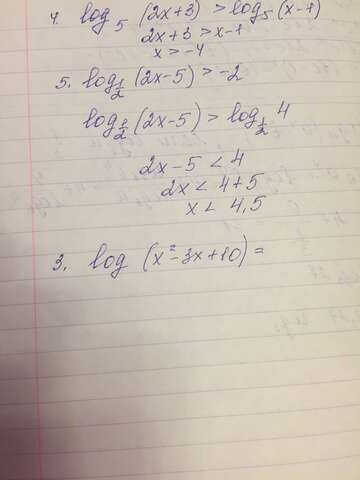 4. log₅ (2x+3) > log₅ (x-1)
2x+3 > x-1
x > -4
5. log_{1/2} (2x-5) > -2
log_{1/2} (2x-5) > log_{1/2} 4
2x-5 < 4
2x < 4+5
x < 4,5
3. log (x²-3x+10) =